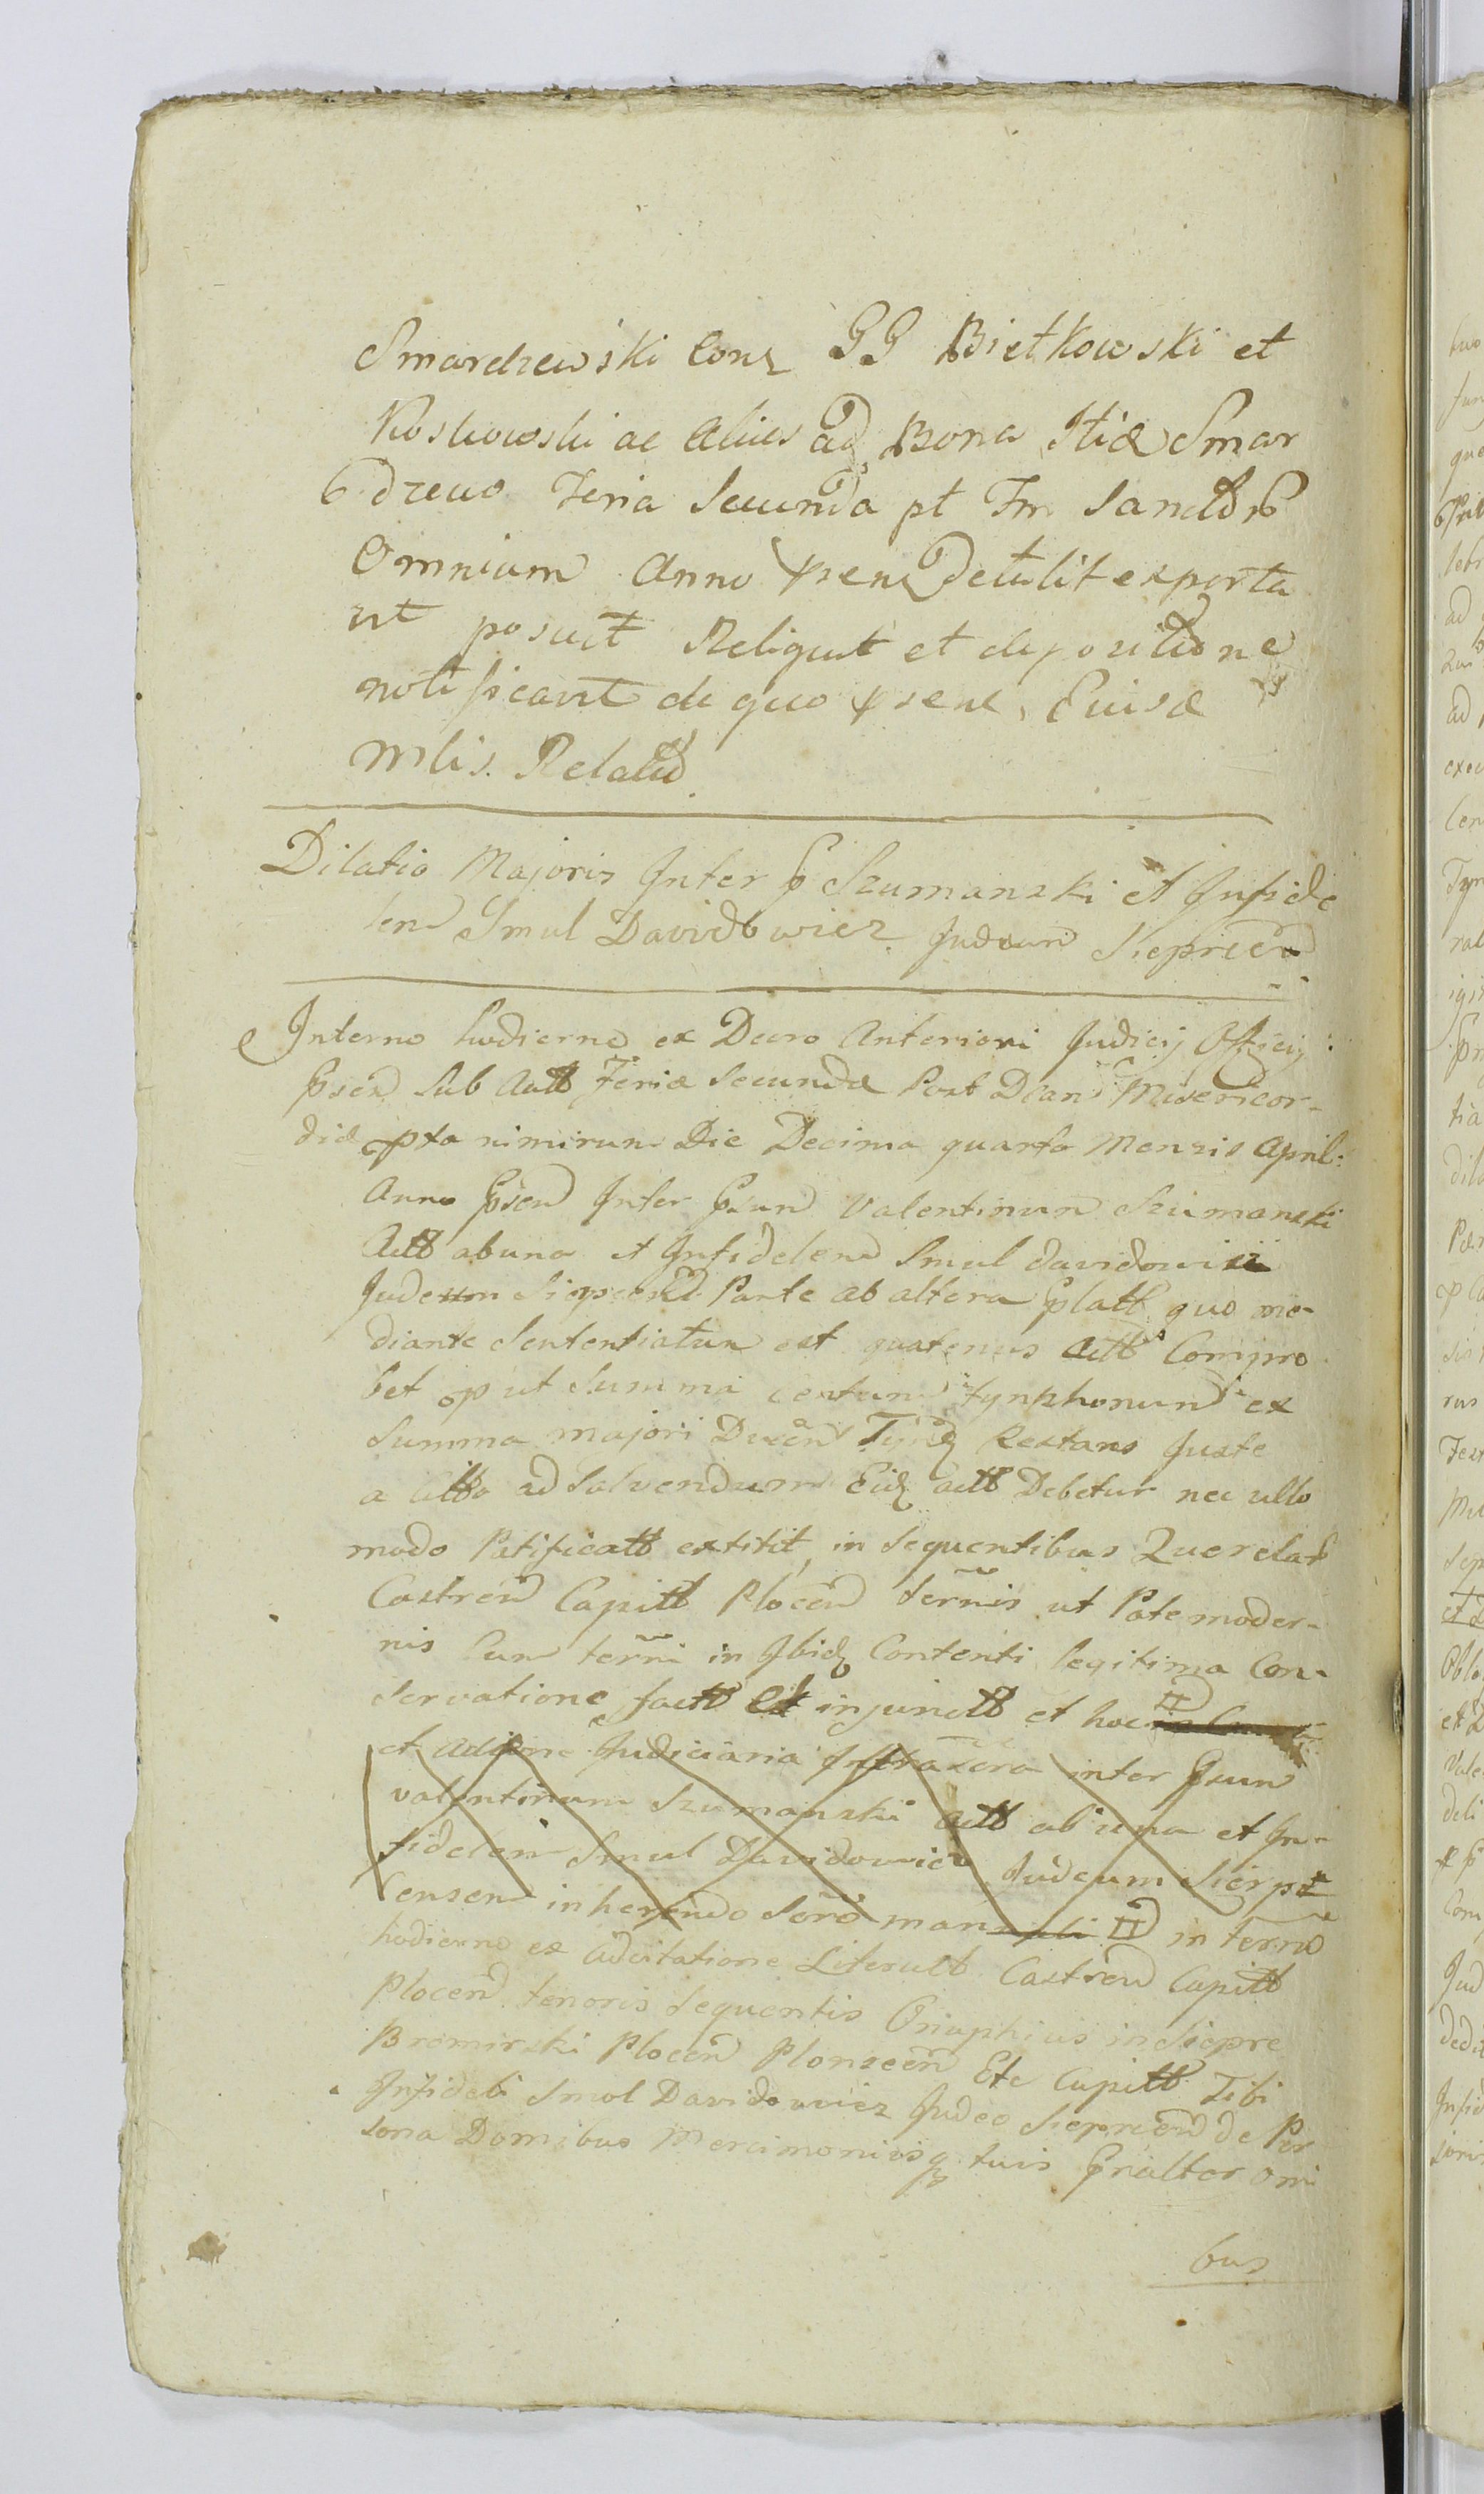 Smardzewski Conz GG Bietkowski et
Koskowski ac alios ad Bona Itiæ Smar
dzewo Feria Secunda pt Fm Sanctor
Omnium Anno psenz detulit exporta
vit posuit Reliquit et depositione
notificavit de quo psenz Euisæ
mlis. Relatio
Dilatio Majoris Inter G Szumanski et Infide
lem Smul Davidowicz Judæum Siepricen
In terno hodierno ex Decro Anteriori Judicij Officij
psen sub Actt Feriæ Secundæ Post Dcam Misericor-
diæ pxta nimirum Die Decima quarta Mensis April:
Anno psen Inter Gsum Valentinum Szumanski
Actt ab una et Infidelem Smul Davidowicz
Judeum Siepscen Parte ab altera Platt quo me-
diante Sententiatum est quatenus Actt Compro
bet op ut Summa centum Tynphonum ex
Summa majori Ducen Tynq Restans Juste
a Citto ad Solvendum Eidz actt Debetur nec ullo
modo Patificatt extitit, in sequentibus Querelas
Castren Capitt Plocen ternis ut Pate moder-
nis Cum terni in Ibidz Contenti legitima Con-
servatione factt et injunctt et hoc
et Adipne Judiciaria inter Gsum
valentinum Szumanski actt ab una et In-
fidelem Smul Davidowicz Judeum Sierpst
censem inherendo Scro man in Terno
hodierno ex adcitatione Literatt Castren Capitt
Plocen tenoris sequentis Onuphius in Siepre
Bromirski Plocen Plonscen Etc Capitt Tibi
Infideli Smol Davidowicz Judeo Siepricen de Per
sona Domibus Mercimoniisq tuis Gnalter omi
bus